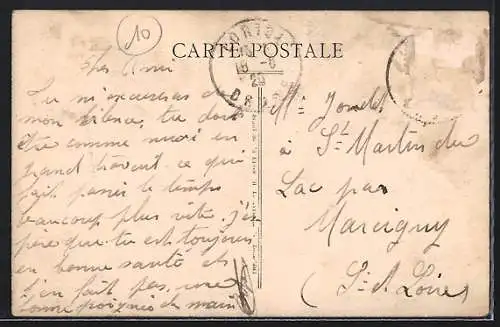 10
CARTE POSTALE
Cher Ami
Tu m'excuseras de
mon silence, tu dois
être comme moi en
grand travail ce qui
fait passer le temps
beaucoup plus vite. j'es
père que tu est toujours
en bonne santé et
j'en fait pas, une
bonne poignée de main
Mr
à St Martin du
Lac par
Marcigny
(S. et Loire)